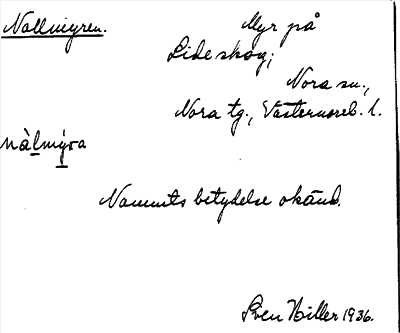 Nallmyren. Myr på
Lideskog;
Nora sn.,
Nora tg., Västernorrl. l.
nàlmýra
Namnets betydelse okänd.
Sven Hiller 1936.